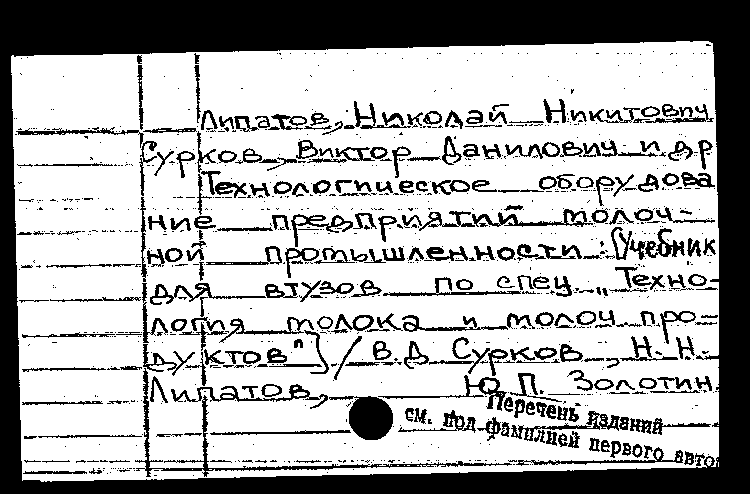 Липатов, Николай Никитович
Сурков, Виктор Данилович и др
Технологическое оборудова
ние предприятий молоч-
ной промышленности: [Учебник
для втузов по спец „Техно-
логия молока и молоч. про-
дуктов"] / В.Д. Сурков, Н.Н.
Липатов, Ю.П. Золотин.
Перечень изданий
см. под фамилией первого авто